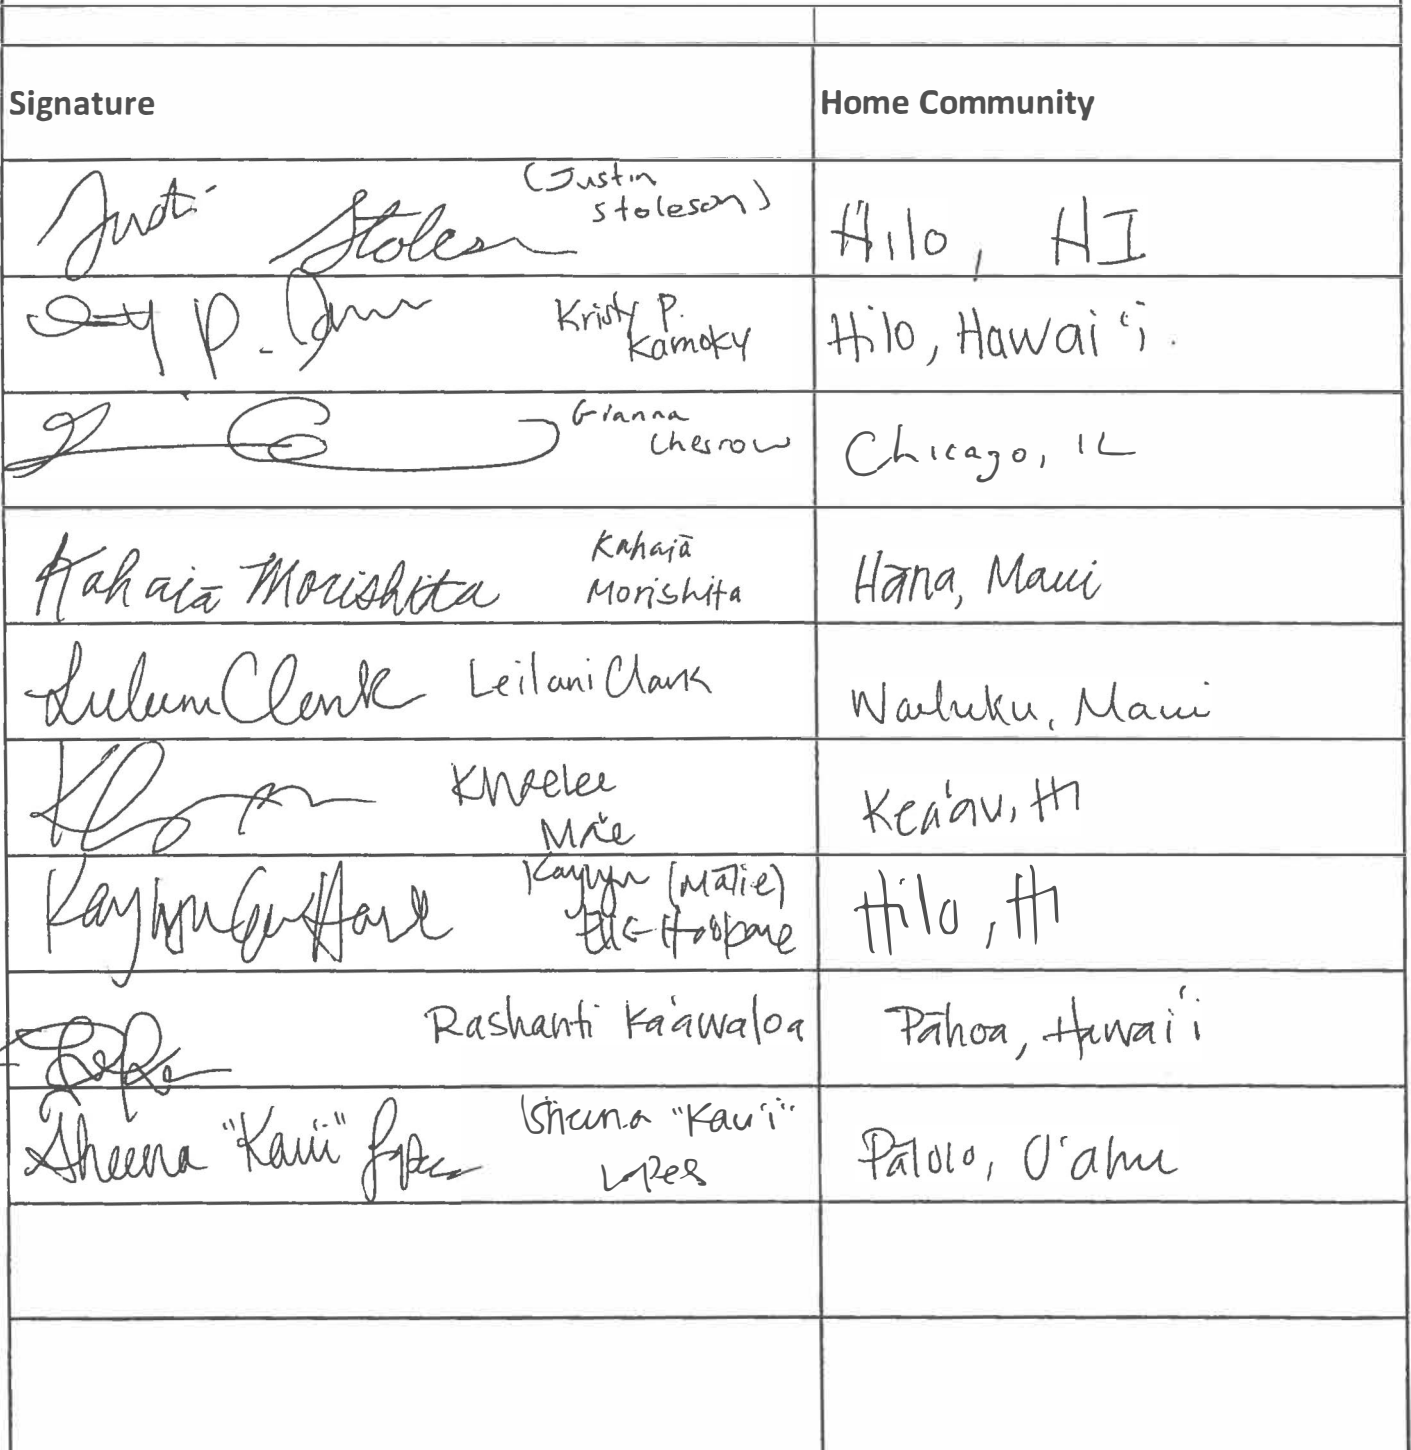 Signature Home Community
Justin Stoleson (Justin
Stoleson) Hilo, HI
P. Kristy P.
Kamoky Hilo, Hawaiʻi.
Gianna
Chesrow Chicago, IL
Kahaiā Morishita Kahaiā
Morishita Hāna, Maui
Leilani Clark Leilani Clark Wailuku, Maui
Maʻe Keaʻau, HI
Kaylyn Kaylyn (Mālie) Hilo, HI
Rashanti Kaʻawaloa Pāhoa, Hawaiʻi
Sheena "Kauʻi" Lopes Sheena "Kauʻi"
Lopes Pālolo, Oʻahu